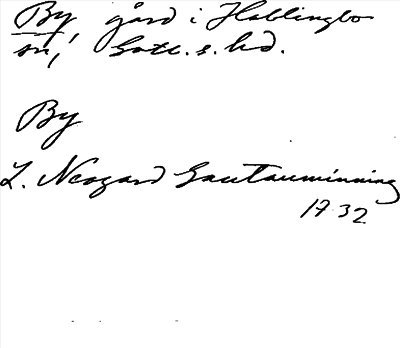 By, gård i Hablingbo
sn, Gotl. s. hd.
By
L. Neogard Gautauminning
1732